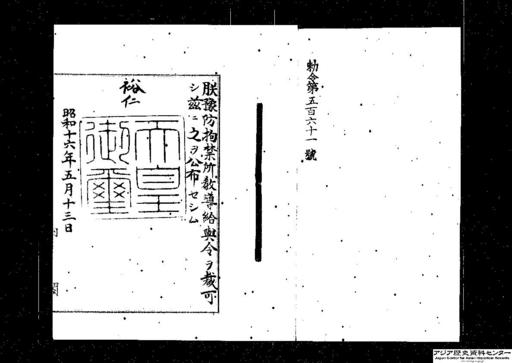 勅令第五百六十一號
朕豫防拘禁所敎導給與令ヲ裁可
シ茲ニ之ヲ公布セシム
裕仁
天皇御璽
昭和十六年五月十三日
内閣
アジア歴史資料センター
Japan Center for Asian Historical Records